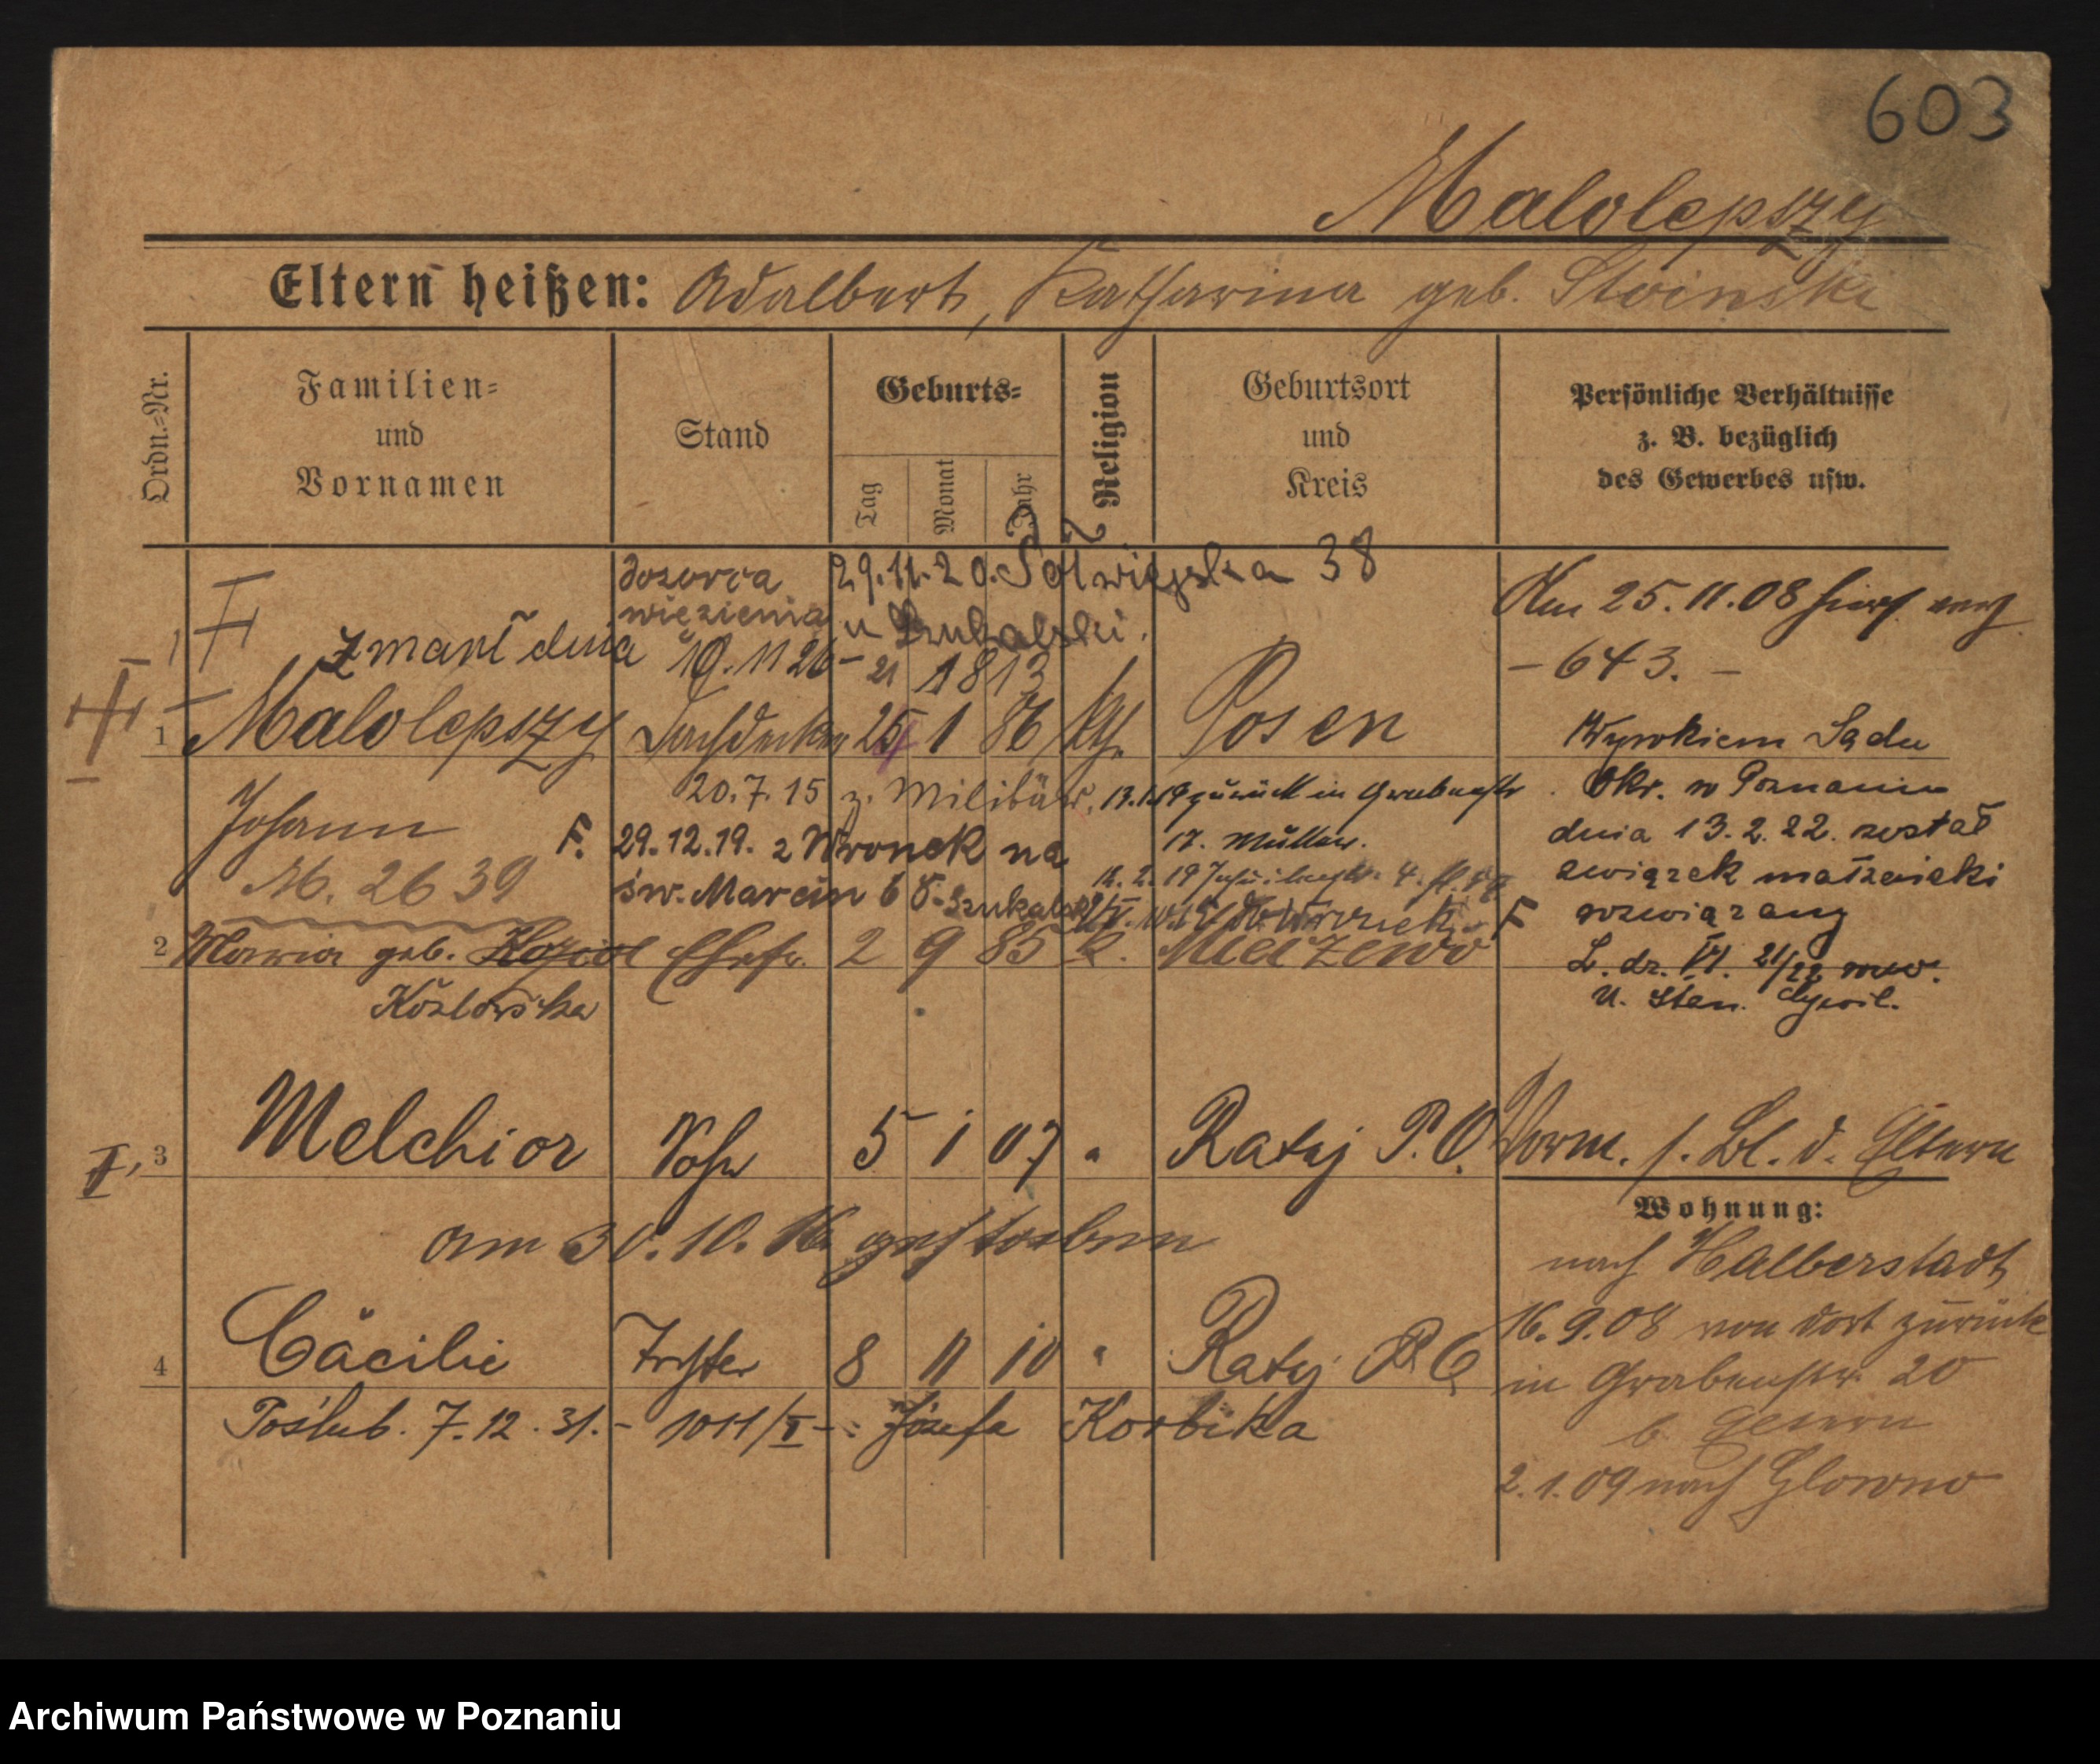 603
Malolepszy
Eltern heißen: Adalbert, Katharina geb. Stoinski
Ordn.-Nr.
Familien-
und
Vornamen
Stand
Geburts-
Tag
Monat
Jahr
Religion
Geburtsort
und
Kreis
Persönliche Verhältnisse
z. B. bezüglich
des Gewerbes usw.
dozorca 29.11.20. Półwiejska 38
więzienia u Szukalski.
zmarł dnia 10.11 26 - 21 1813
1 Malolepszy Dachdecker 25 1 86 kth. Posen
Johann
20.7.15 z. Militär, 13.1.19 zurück in Grabenstr
17. Müller.
M. 2639
F. 29.12.19. z Wronek na
św. Marcin 68. Szukalski
2 Maria geb. Koziol Ehefr. 2 9 85 k. Mieczewo
Kozlowska
3 Melchior Sohn 5 1 07 " Rataj P.O.
am 30.10.16 gestorben
4 Cäcilie Tochter 8 11 10 " Rataj P.O.
Poślub. 7.12.31.- 1011/I - Józefa Korbika
Am 25.11.08
- 643. -
Wyrokiem Sądu
Okr. w Poznaniu
dnia 13.2.22. został
związek małżeński
rozwiązany
F
U. Stan. Cywil.
Vorm. s. Bl. d. Eltern
Wohnung:
nach Halberstadt
16.9.08 von dort zurück
in Grabenstr. 20
b. Eltern
2.1.09 nach Glowno
Archiwum Państwowe w Poznaniu